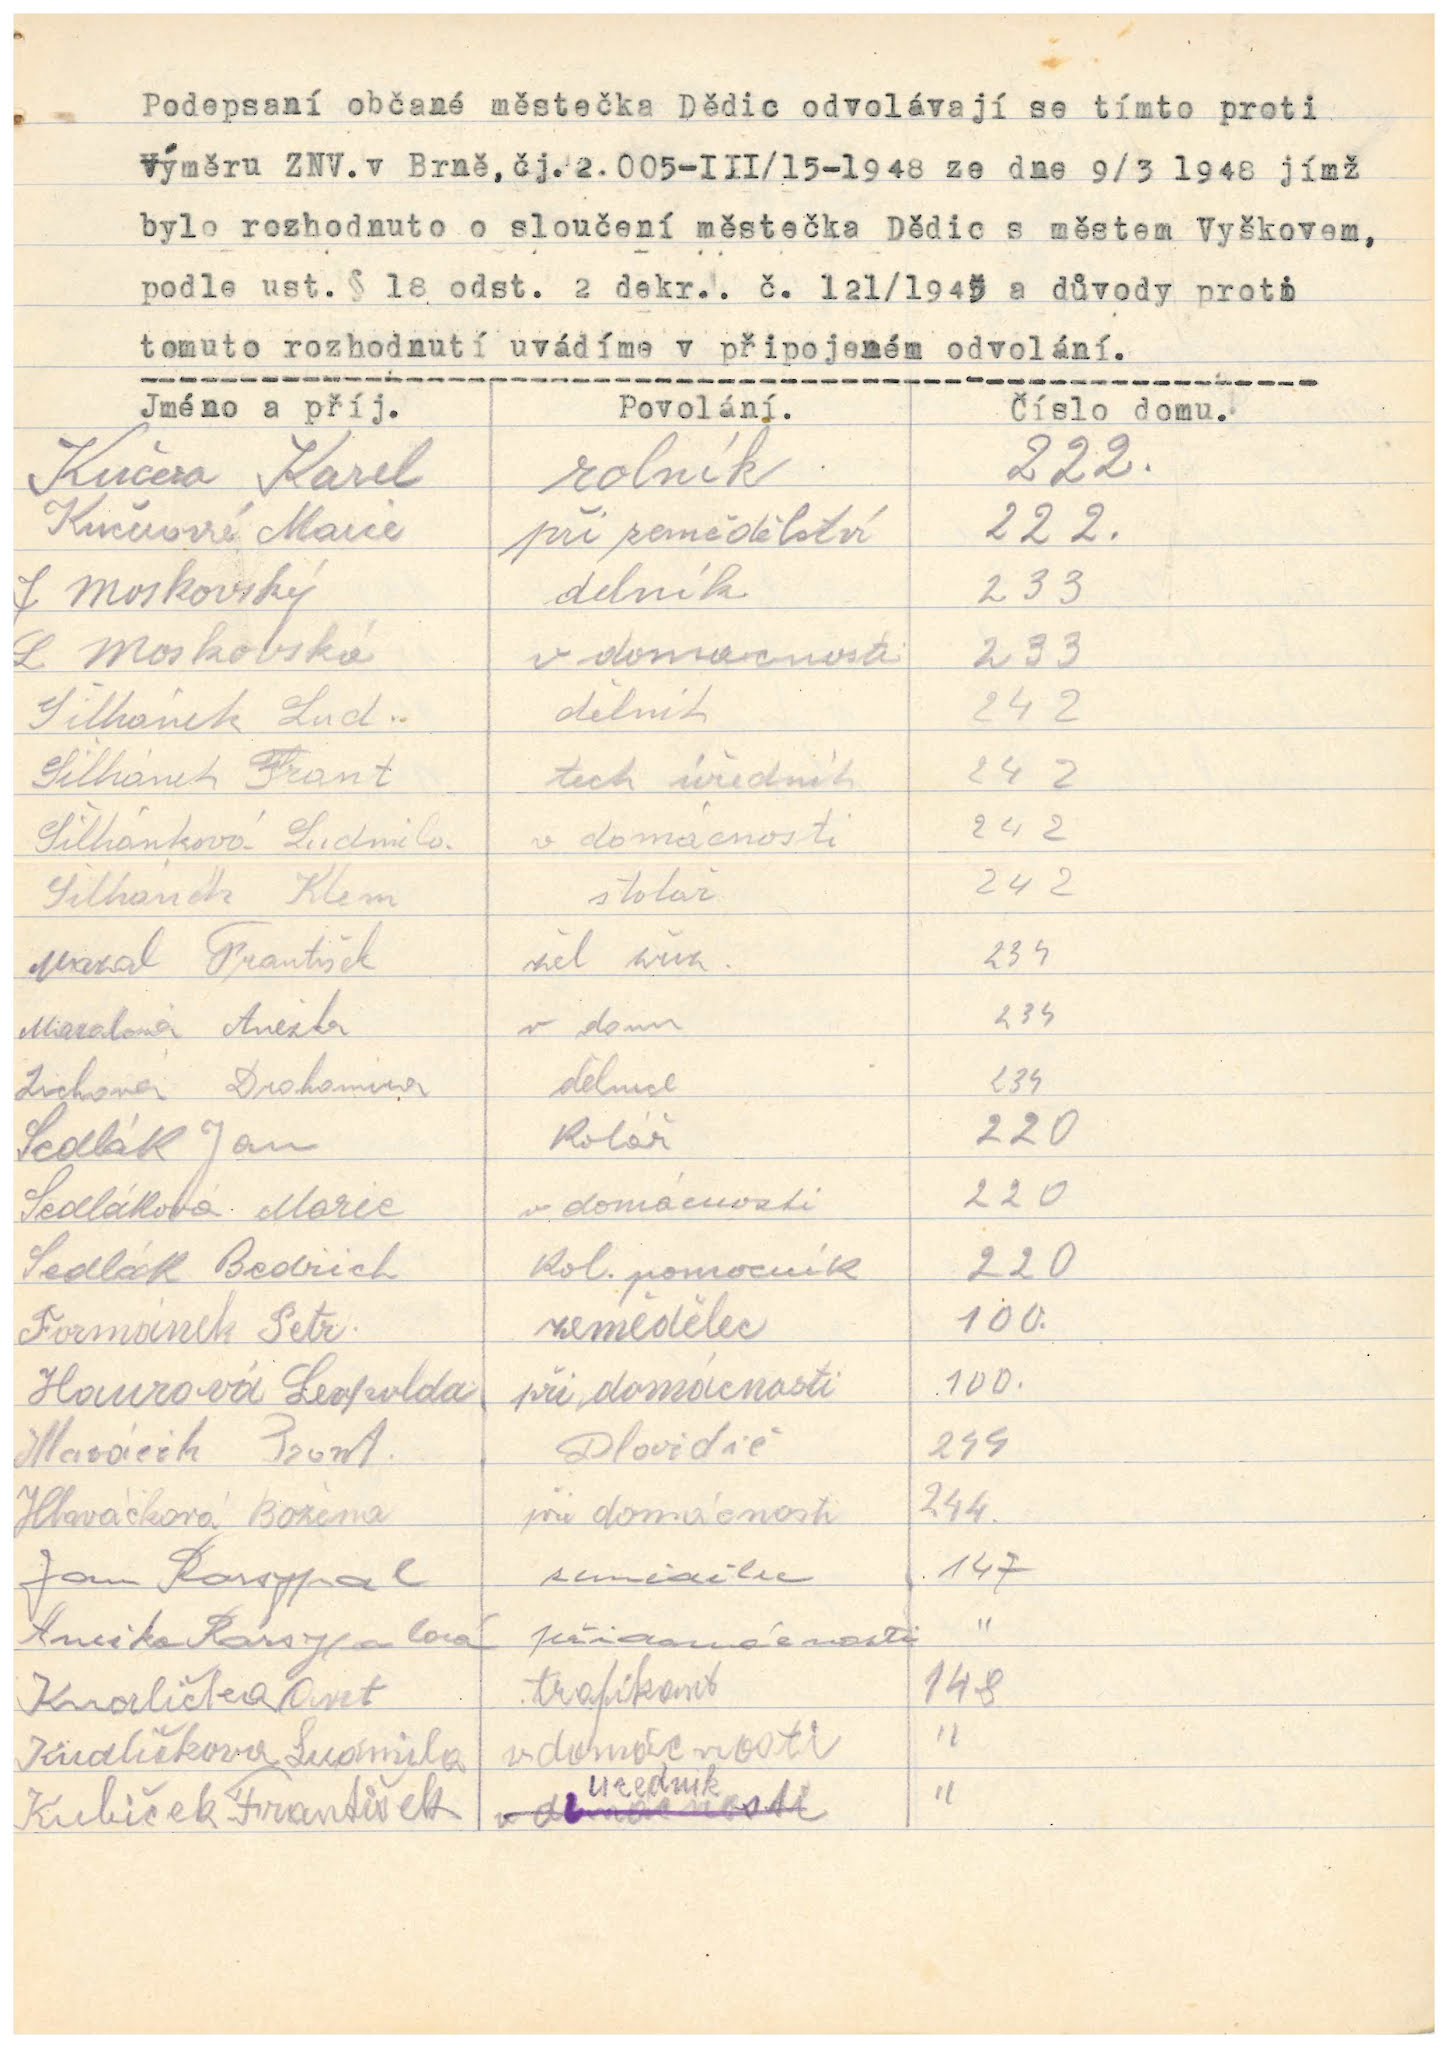 Podepsaní občané městečka Dědic odvolávají se tímto proti
Výměru ZNV. v Brně, čj. 2.005-III/15-1948 ze dne 9/3 1948 jímž
bylo rozhodnuto o sloučení městečka Dědic s městem Vyškovem,
podle ust. § 18 odst. 2 dekr. . č. 121/1945 a důvody proti
tomuto rozhodnutí uvádíme v připojeném odvolání.
Jméno a příj. Povolání. Číslo domu.
Kučera Karel rolník 222.
Kučerová Marie při zemědělství 222.
J Moskovský delník 233
L Moskovská v domacnosti 233
Šilhánek Lud.. dělník 242
Šilhánek Frant tech úředník 242
Šilhánková Ludmila. v domácnosti 242
Šilhánek Klem stolař 242
Mazal František žel zříz. 234
Mazalová Anežka v domě 234
Zichová Drahomira dělnice 234
Sedlák Jan Kolář 220
Sedláková Marie v domácnosti 220
Sedlák Bedřich Kol. pomocník 220
Formánek Petr. zemědělec 100.
Haurová Leopolda při domácnosti 100.
Hlaváček Frant. 244
Hlaváčková Božena při domácnosti 244.
Jan Rarsypal 147
Rarsypalová při domácnosti "
Ant trafikant 148
Kudličkova Ludmila v domácnosti "
Kubíček František v domácnosti uředník "